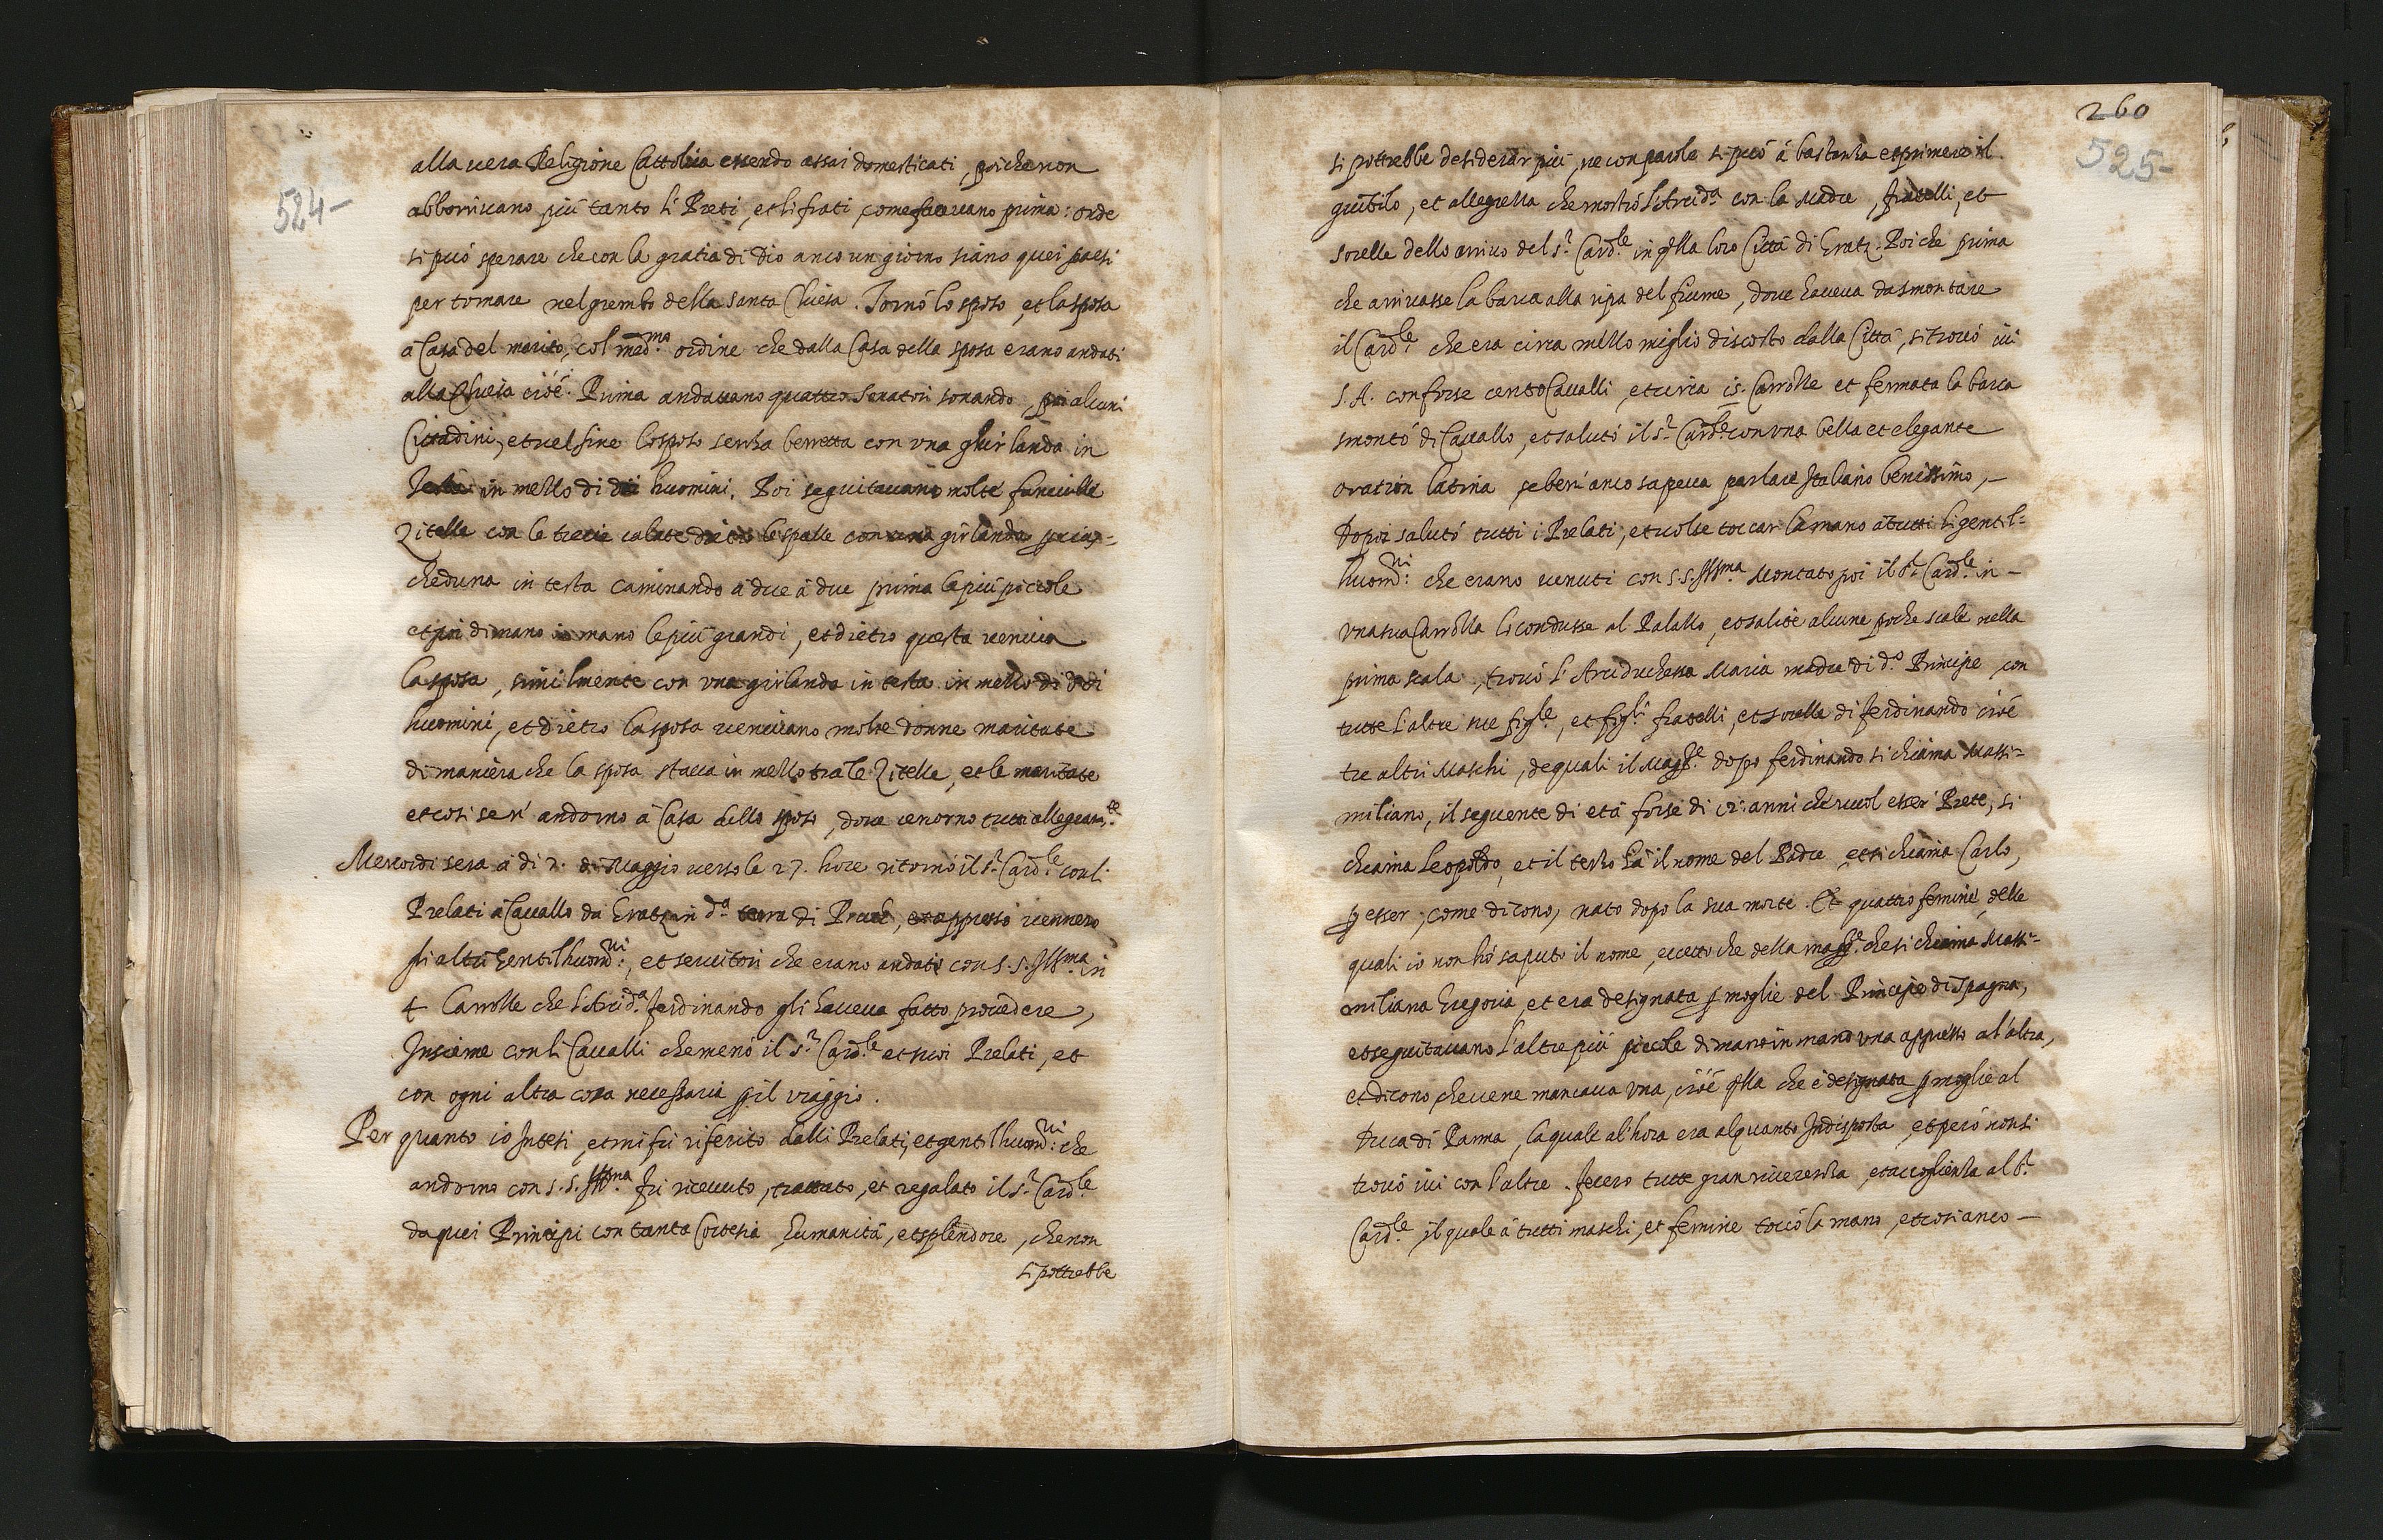 524-
alla uera Religione Cattolica essendo assai domesticati, poiche non
abborriuano più tanto li Preti, et li frati, come faceuano prima: onde
si può sperare che con la gratia di Dio anco un giorno siano quei paesi
per tornare nel grembo della santa Chiesa. Tornò lo sposo, et la sposa
à Casa del marito, col med.mo ordine che dalla Casa della sposa erano andati
alla Chiesa cioè. Prima andauano quattro Sonatori sonando, poi alcuni
Cittadini, et nel fine lo sposo senza berretta con vna ghirlanda in
Testa in mezzo di dui huomini. Poi seguitauano molte fanciulle
Zitelle con le treccie calate dietro le spalle con una girlanda pe ciasc=
cheduna in testa caminando à due à due prima le più piccole
et poi di mano in mano le più grandi, et dietro questa veniua
la sposa, similmente con vna girlanda in testa in mezzo di dodi
huomini, et dietro la sposa ueniuano molte donne maritate
di maniera che la sposa staua in mezzo tra le Zitelle, et le maritate
et cosi se n' andorno à Casa dello sposo, doue cenorno tutti allegram.te
Mercordi sera à di 7. di Maggio verso le 27. hore ritornò il s.r Card.le con li
Prelati à Cauallo da Gratz in d.a terra di Pruch, et appresso uennero
gli altri Gentilhuom.ni, et seruitori che erano andati con s. s. Ill.ma in
4 Carrozze che l'Arcid.a Ferdinando gli haueua fatto prouedere,
Insieme con li Caualli che menò il s.r Card.le et suoi Prelati, et
con ogni altra cosa necessaria p il viaggio.
Per quanto io Intesi, et mi fù riferito dalli Prelati, et gentilhuom.ni che
andorno con s. s. Ill.ma fù riceuuto, trattato, et regalato il s.r Card.le
da quei Principi con tanta Cortesia, humanità, et splendore, che non
si pottrebbe
260
525-
si pottrebbe desiderar più, ne con parole si può à bastanza esprimere il
giubilo, et allegrezza che mostrò l'Arcid.a con la Madre, fratelli, et
sorelle dello arriuo del s.r Card.le in qlla loro Città di Gratz. Poi che prima
che arriuasse la barca alla ripa del fiume, doue haueua da smontare
il Card.le che era circa mezzo miglio discosto dalla Città, si trouò iui
S. A. con forse cento Caualli, et circa 15. Carrozze et fermata la barca
smontò di Cauallo, et salutò il s.r Card.le con vna bella et elegante
oration latina se ben' anco sapeua parlare Italiano benissimo, -
Dopoi salutò tutti i Prelati, et uolse toccar la mano à tutti li gentil=
huom.ni che erano uenuti con s. s. Ill.ma Montato poi il s.r Card.le in -
vna sua Carrozza li condusse al Palazzo, et salite alcune poche scale nella
prima scala, trouò l'Arciduchessa Maria madre di d.o Principe, con
tutte l'altre sue figl.e, et figl.i fratelli, et sorelle di Ferdinando cioè
tre altri Maschi, de quali il Magg.re dopo ferdinando si chiama Massi=
miliano, il seguente di età forse di 12. anni che vuol esser Prete, si
chiama Leopoldo, et il terzo hà il nome del Padre, et si chiama Carlo,
p esser, come dicono, nato dopo la sua morte. Et quattro femine, delle
quali io non hò saputo il nome, eccetto che della magg.re che si chiama Massi=
miliana Gregoria, et era designata p moglie del Principe di Spagna,
et seguitauano l'altre più piccole di mano in mano vna appresso al'altra,
et dicono che uene mancaua vna, cioè qlla che è designata p moglie al
Duca di Parma, la quale al'hora era alquanto Indisposta, et però non si
trouò iui con l'altre. Fecero tutte gran riuerenza, et accoglienza al s.r
Card.le il quale à tutti maschi, et femine toccò la mano, et cosi anco -